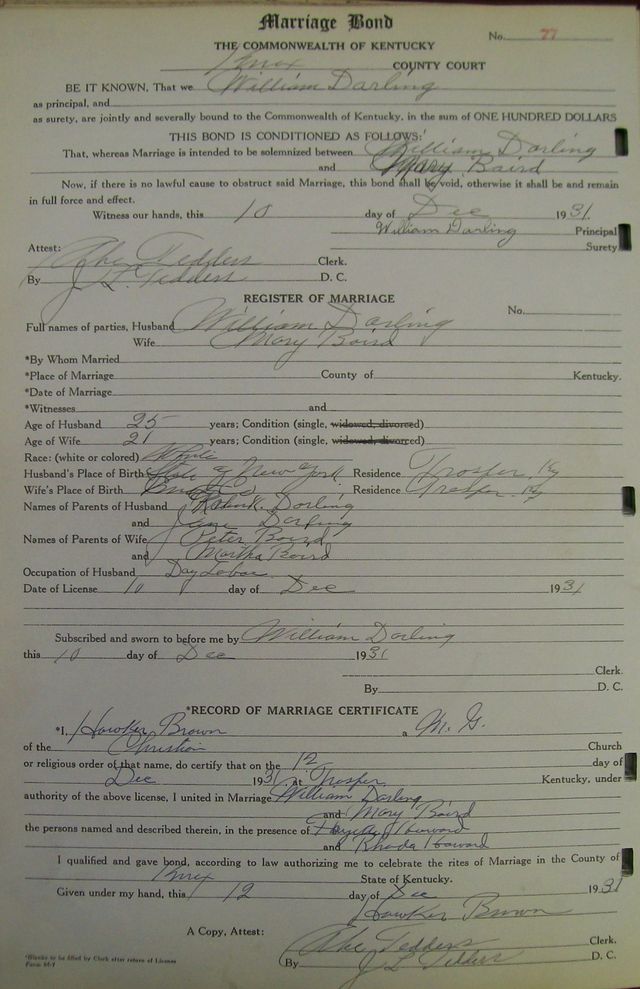 Marriage Bond
No. 77
THE COMMONWEALTH OF KENTUCKY
Knox COUNTY COURT
BE IT KNOWN, That we William Darling
as principal, and
as surety, are jointly and severally bound to the Commonwealth of Kentucky, in the sum of ONE HUNDRED DOLLARS
THIS BOND IS CONDITIONED AS FOLLOWS:
That, whereas Marriage is intended to be solemnized between William Darling
and Mary Baird
Now, if there is no lawful cause to obstruct said Marriage, this bond shall be void, otherwise it shall be and remain
in full force and effect.
Witness our hands, this 10 day of Dec 1931.
William Darling Principal
Surety.
Attest:
Abe Tedders Clerk.
By J L Tedders D. C.
REGISTER OF MARRIAGE
No.
Full names of parties, Husband William Darling
Wife Mary Baird
*By Whom Married
*Place of Marriage County of Kentucky.
*Date of Marriage
*Witnesses and
Age of Husband 25 years; Condition (single, widowed, divorced)
Age of Wife 21 years; Condition (single, widowed, divorced)
Race: (white or colored) White
Husband's Place of Birth State of New York Residence Trosper, Ky
Wife's Place of Birth Residence Trosper, Ky
Names of Parents of Husband Darling
and Jane Darling
Names of Parents of Wife Peter Baird
and Martha Baird
Occupation of Husband Day Labor
Date of License 10 day of Dec 1931
Subscribed and sworn to before me by William Darling
this 10 day of Dec 1931
Clerk.
By D. C.
*RECORD OF MARRIAGE CERTIFICATE
*I, Hawker Brown a M. G.
of the Christian Church
or religious order of that name, do certify that on the 12 day of
Dec 1931 at Trosper Kentucky, under
authority of the above license, I united in Marriage William Darling
and Mary Baird
the persons named and described therein, in the presence of Howard
and Rhoda Howard
I qualified and gave bond, according to law authorizing me to celebrate the rites of Marriage in the County of
Knox State of Kentucky.
Given under my hand, this 12 day of Dec 1931
Hawker Brown
A Copy, Attest:
Abe Tedders Clerk.
By J L Tedders D. C.
*Blanks to be filled by Clerk after return of License